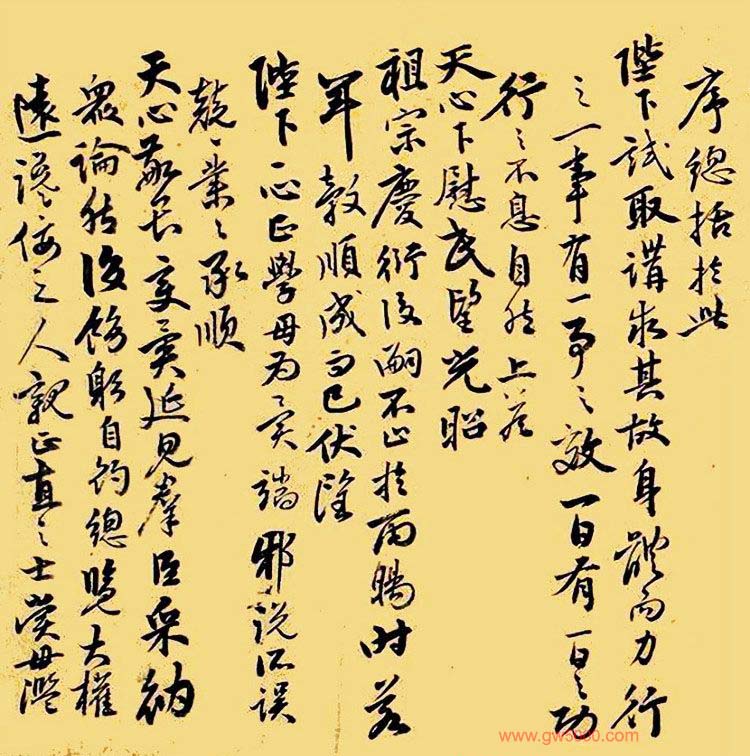 序總括於此
陛下試取講求其故身體而力行
之一事有一事之效一日有一日之功
行之不息自然上答
天心下慰民望光昭
祖宗慶衍後嗣不止於雨暘時若
年穀順成而已伏望
陛下一心正學毋為異端邪說所誤
兢兢業業承順
天心敬長災異延見群臣采納
眾論然後飭躬自約總覽大權
遠讒佞之人親正直之士賞毋濫
www.gw5000.com